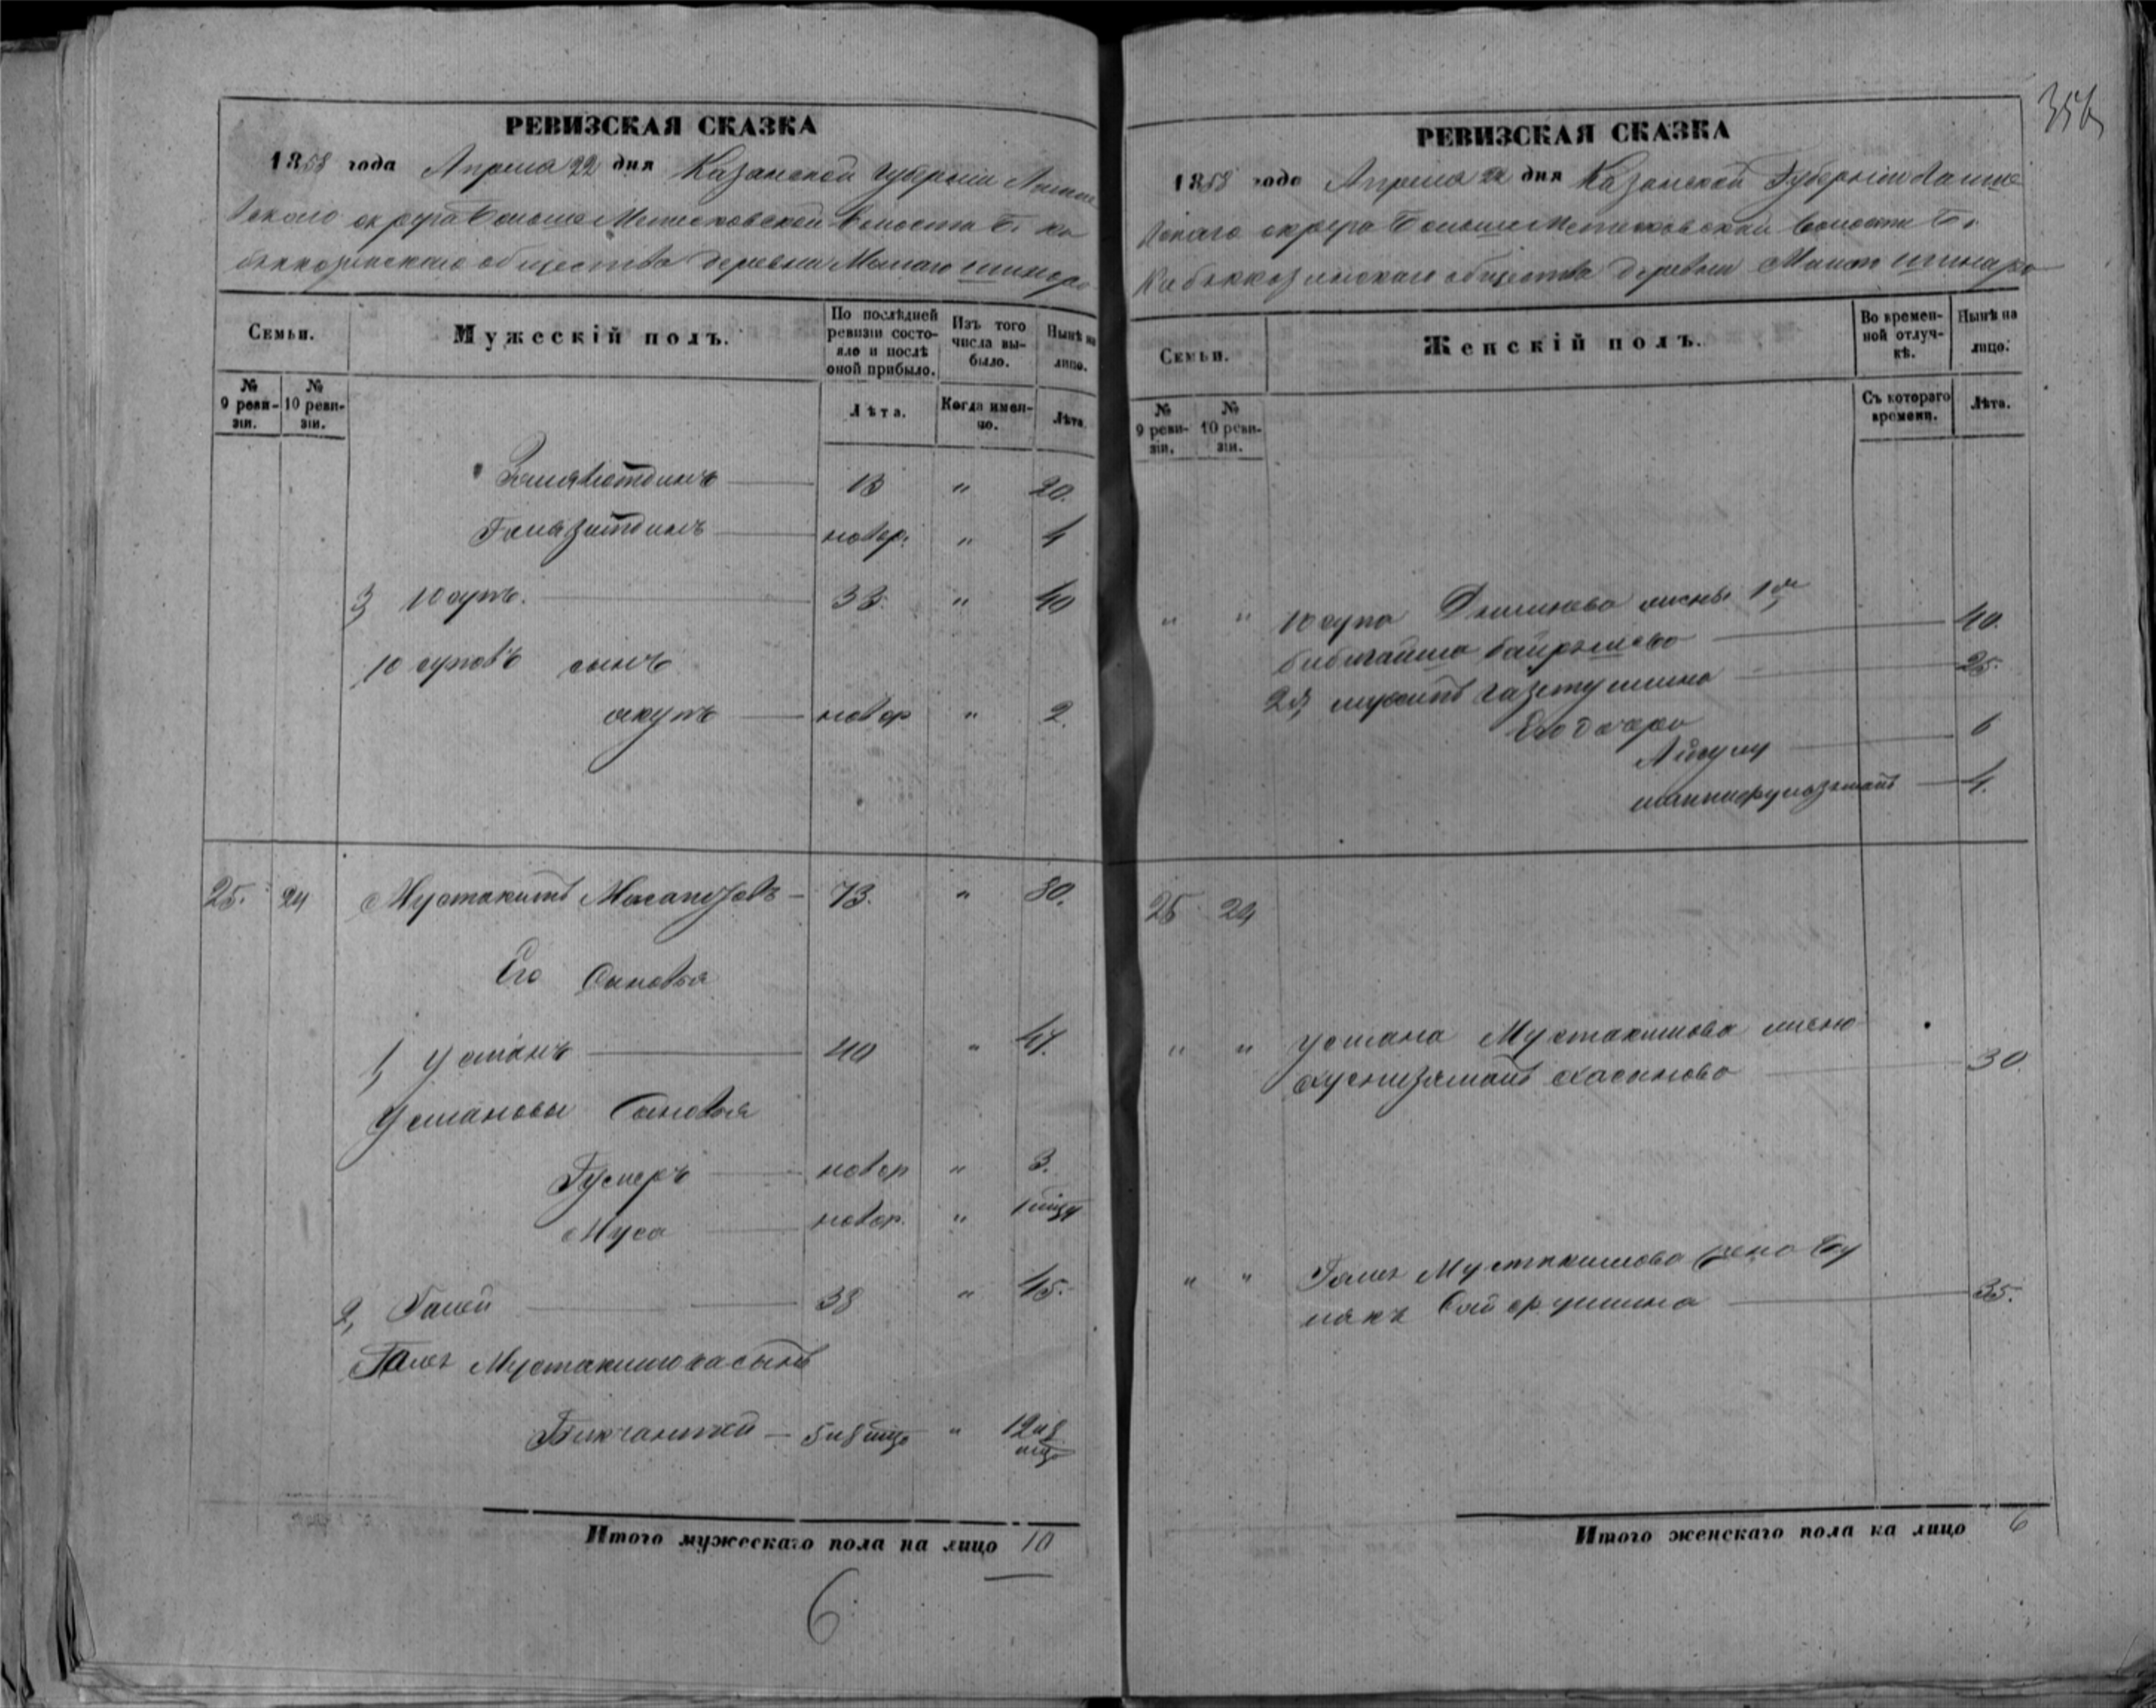 РЕВИЗСКАЯ СКАЗКА
1858 года Апреля 22 дня Казанской Губерніи Лаише
вскаго округа Больше Метесковской Волости Б. Ка
быккозинскаго общества деревни Малаго шинара
Семьи.
Мужескій полъ.
По послѣдней ревизіи состо-
яло и послѣ оной прибыло.
Изъ того числа вы-
было.
Нынѣ на лицо.
№ 9 реви-
зіи.
№ 10 реви-
зіи.
Лѣта.
Когда имен-
но.
Лѣта.
13 " 20.
новор. " 4
3, Юсупъ. 33. " 40
Юсуповъ сынъ
Якупъ новор " 2.
25. 24 Мустакимъ 73. " 80.
Его Сыновья
1, Усманъ 40 " 47.
Усмановы Сыновья
новор " 3.
Муса новор. "
2, Галей 38 " 45.
Галея Мустакимова сынъ
5 и 8 мцв " 12 и 8 мцв
Итого мужескаго пола на лицо 10
6
356
РЕВИЗСКАЯ СКАЗКА
1858 года Апреля 22 дня Казанской Губерніи Лаише
вскаго округа Больше Метесковской Волости Б.
Кабыккозинскаго общества деревни Малаго шинара
Семьи.
Женскій полъ.
Во времен-
ной отлуч-
кѣ.
Нынѣ на лицо.
№ 9 реви-
зіи.
№ 10 реви-
зіи.
Съ котораго времени.
Лѣта.
" " Юсупа жены 1я
40.
2я, 25.
Его дочери
6
4.
25 24
" " Усмана Мустакимова жена
хуснизямалъ хасанова 30.
" " Галея Мустакимова жена Бу
лякъ Сайфуллина 35.
Итого женскаго пола на лицо 6